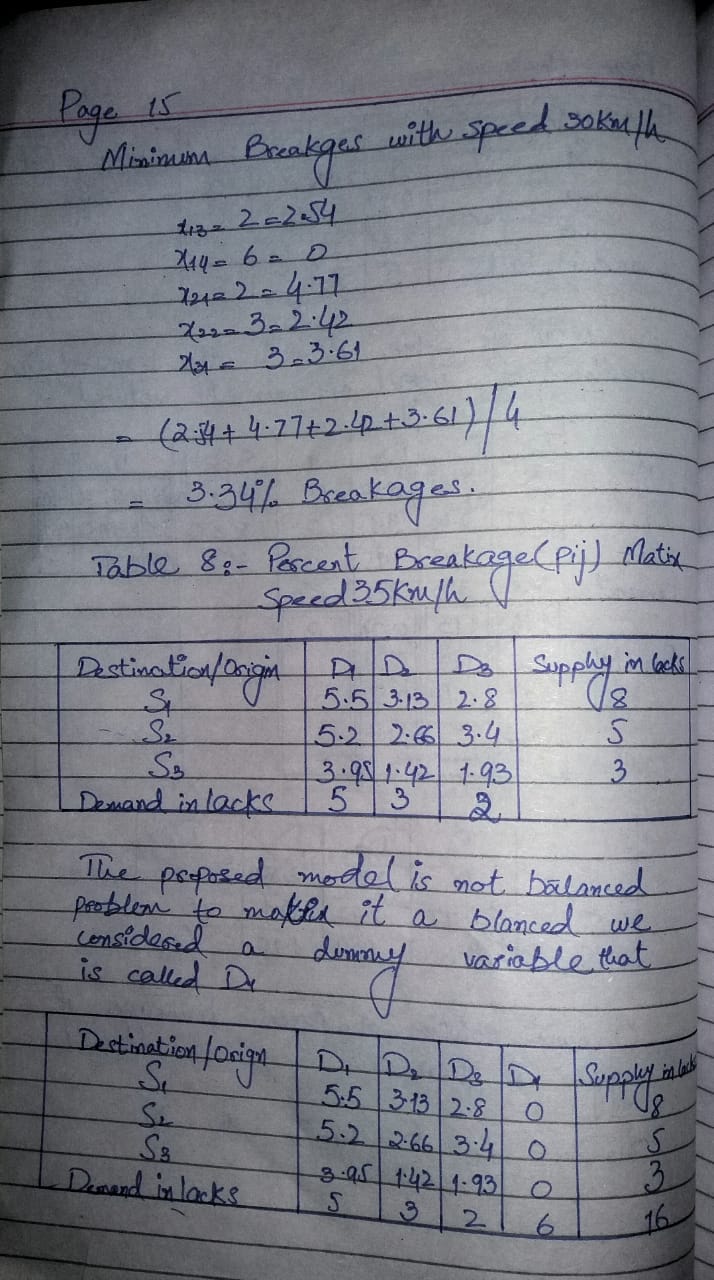 Page 15
Minimum Breakges with speed 30km/h
x13 = 2 = 2.54
x14 = 6 = 0
x21 = 2 = 4.77
x22 = 3 = 2.42
x31 = 3 = 3.61
= (2.54 + 4.77 + 2.42 + 3.61) / 4
= 3.34% Breakages.
Table 8:- Percent Breakage (Pij) Matix
Speed 35Km/h
Destination/Origin D1 D2 D3 Supply in lacks
S1 5.5 3.13 2.8 8
S2 5.2 2.66 3.4 5
S3 3.95 1.42 1.93 3
Demand in lacks 5 3 2
The proposed model is not balanced
problem to it a blanced we
considered a dummy variable that
is called D4
Destination/Orign D1 D2 D3 D4 Supply in lacks
S1 5.5 3.13 2.8 0 8
S2 5.2 2.66 3.4 0 5
S3 3.95 1.42 1.93 0 3
Demand in lacks 5 3 2 6 16